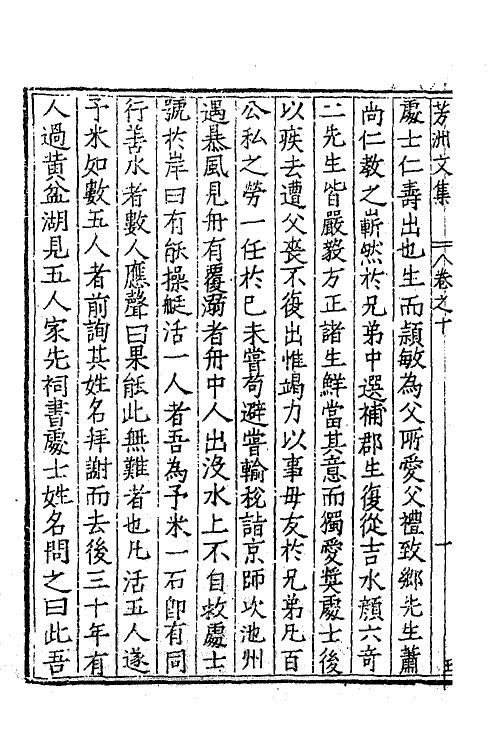 芳洲文集 八卷之十 一 五
處士仁壽出也生而頴敏為父所愛父禮致鄉先生蕭
尚仁教之嶄然於兄弟中選補郡生復從吉水顏六奇
二先生皆嚴毅方正諸生鮮當其意而獨愛奬處士後
以疾去遭父喪不復出惟竭力以事母友於兄弟凡百
公私之勞一任於已未嘗苟避嘗輸稅詣京師次池州
遇暴風見舟有覆溺者舟中人出沒水上不自救處士
號於岸曰有能操艇活一人者吾為予米一石卽有同
行善水者數人應聲曰果能此無難者也凡活五人遂
予米如數五人者前詢其姓名拜謝而去後三十年有
人過黄盆湖見五人家先祠書處士姓名問之曰此吾